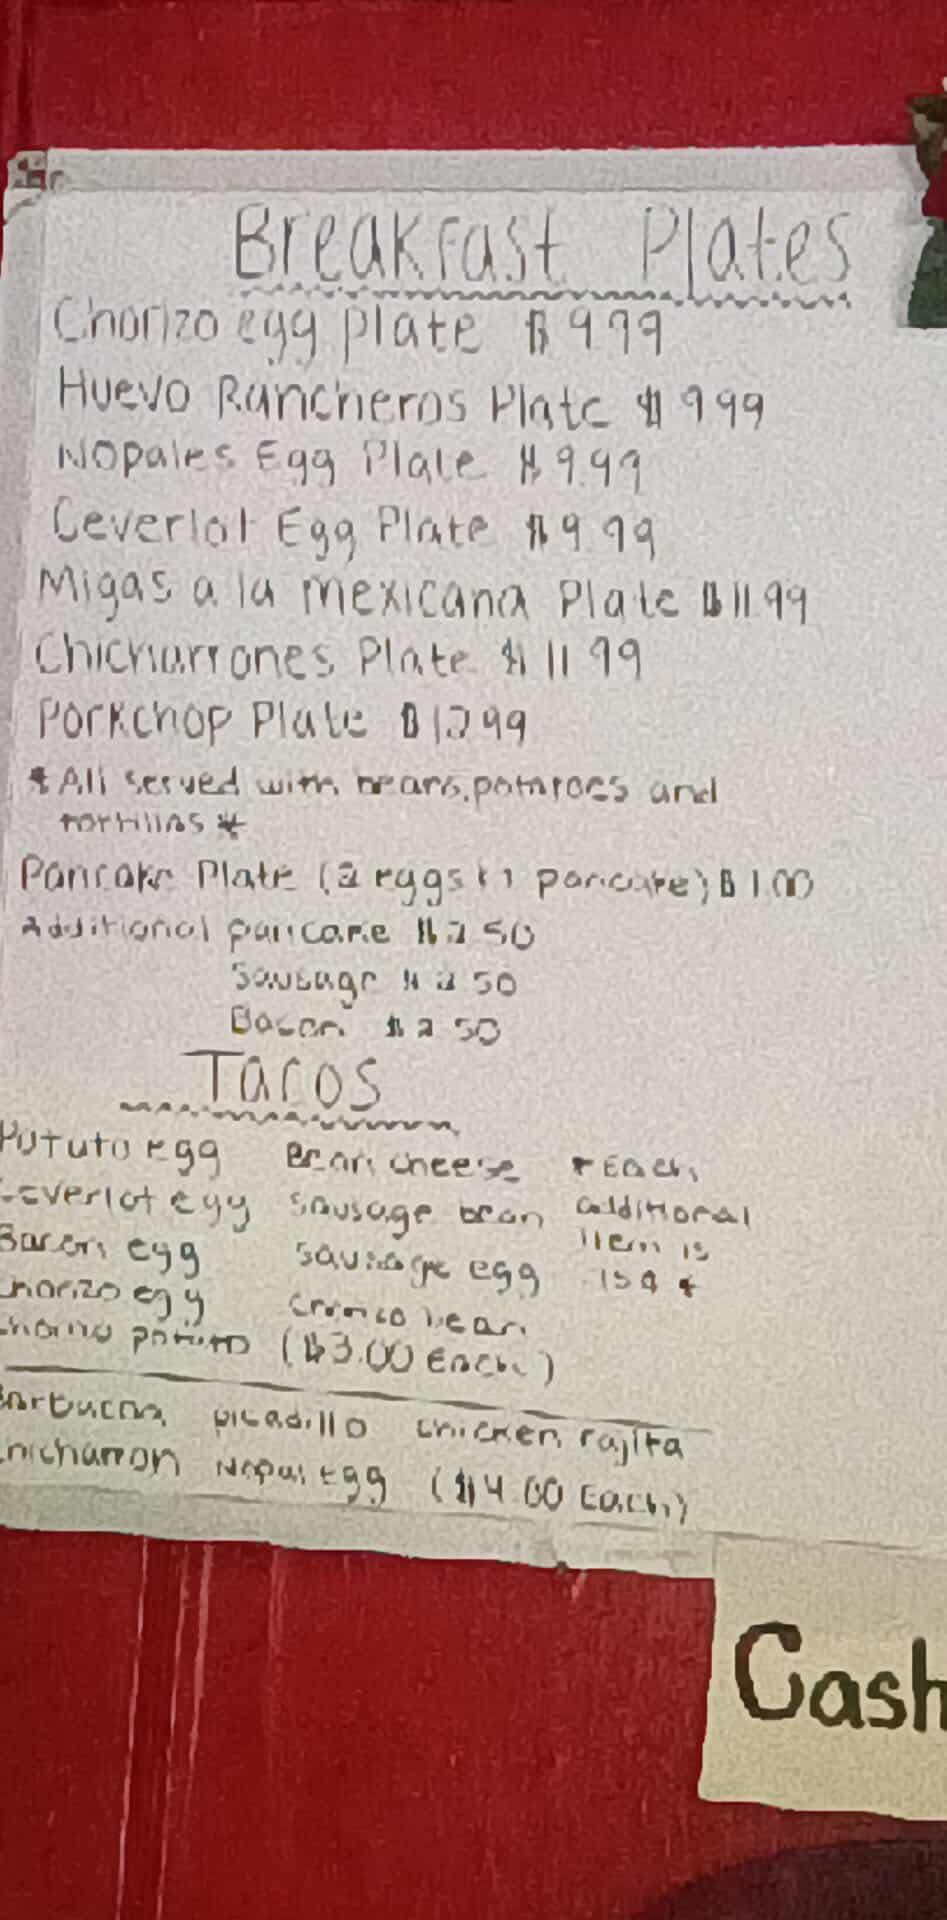 Breakfast Plates
Chorizo egg plate $9.99
Huevo Rancheros Plate $9.99
Nopales Egg Plate $9.99
Ceverlot Egg Plate $9.99
Migas a la mexicana Plate $11.99
Chicharrones Plate $11.99
Porkchop Plate $12.99
*All served with beans, potatoes and
tortillas*
Pancake Plate (2 eggs + 1 pancake)
Additional pancake $2.50
Sausage $2.50
Bacon $2.50
Tacos
Potato egg Bean cheese *Each
Ceverlot egg Sausage bean additional
Bacon egg Sausage egg item is
Chorizo egg bean
potato ($3.00 Each)
Barbacoa picadillo chicken fajita
Chicharron Nopal Egg ($4.00 Each)
Cash